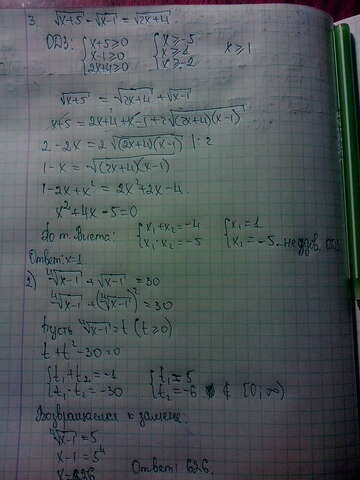 3. √x+5 - √x-1 = √2x+4
ОДЗ: { x+5≥0 { x≥-5
x-1≥0 x≥1 x≥1
2x+4≥0 x≥-2
√x+5 = √2x+4 + √x-1
x+5 = 2x+4+x-1+2√(2x+4)(x-1)
2-2x = 2√(2x+4)(x-1) |:2
1-x = √(2x+4)(x-1)
1-2x+x² = 2x²+2x-4
x²+4x-5=0
По т. Виета: { x₁+x₂=-4 { x₁=1
x₁·x₂=-5 x₁=-5 - не удов.
Ответ: x=1
2) ⁴√x-1 + √x-1 = 30
⁴√x-1 + (⁴√x-1)² = 30
Пусть ⁴√x-1 = t (t≥0)
t+t²-30=0
{ t₁+t₂=-1 { t₁=5
t₁·t₂=-30 t₂=-6 ∉ [0,∞)
Возвращаемся к замене:
⁴√x-1 = 5
x-1=5⁴
x=626 Ответ: 626.